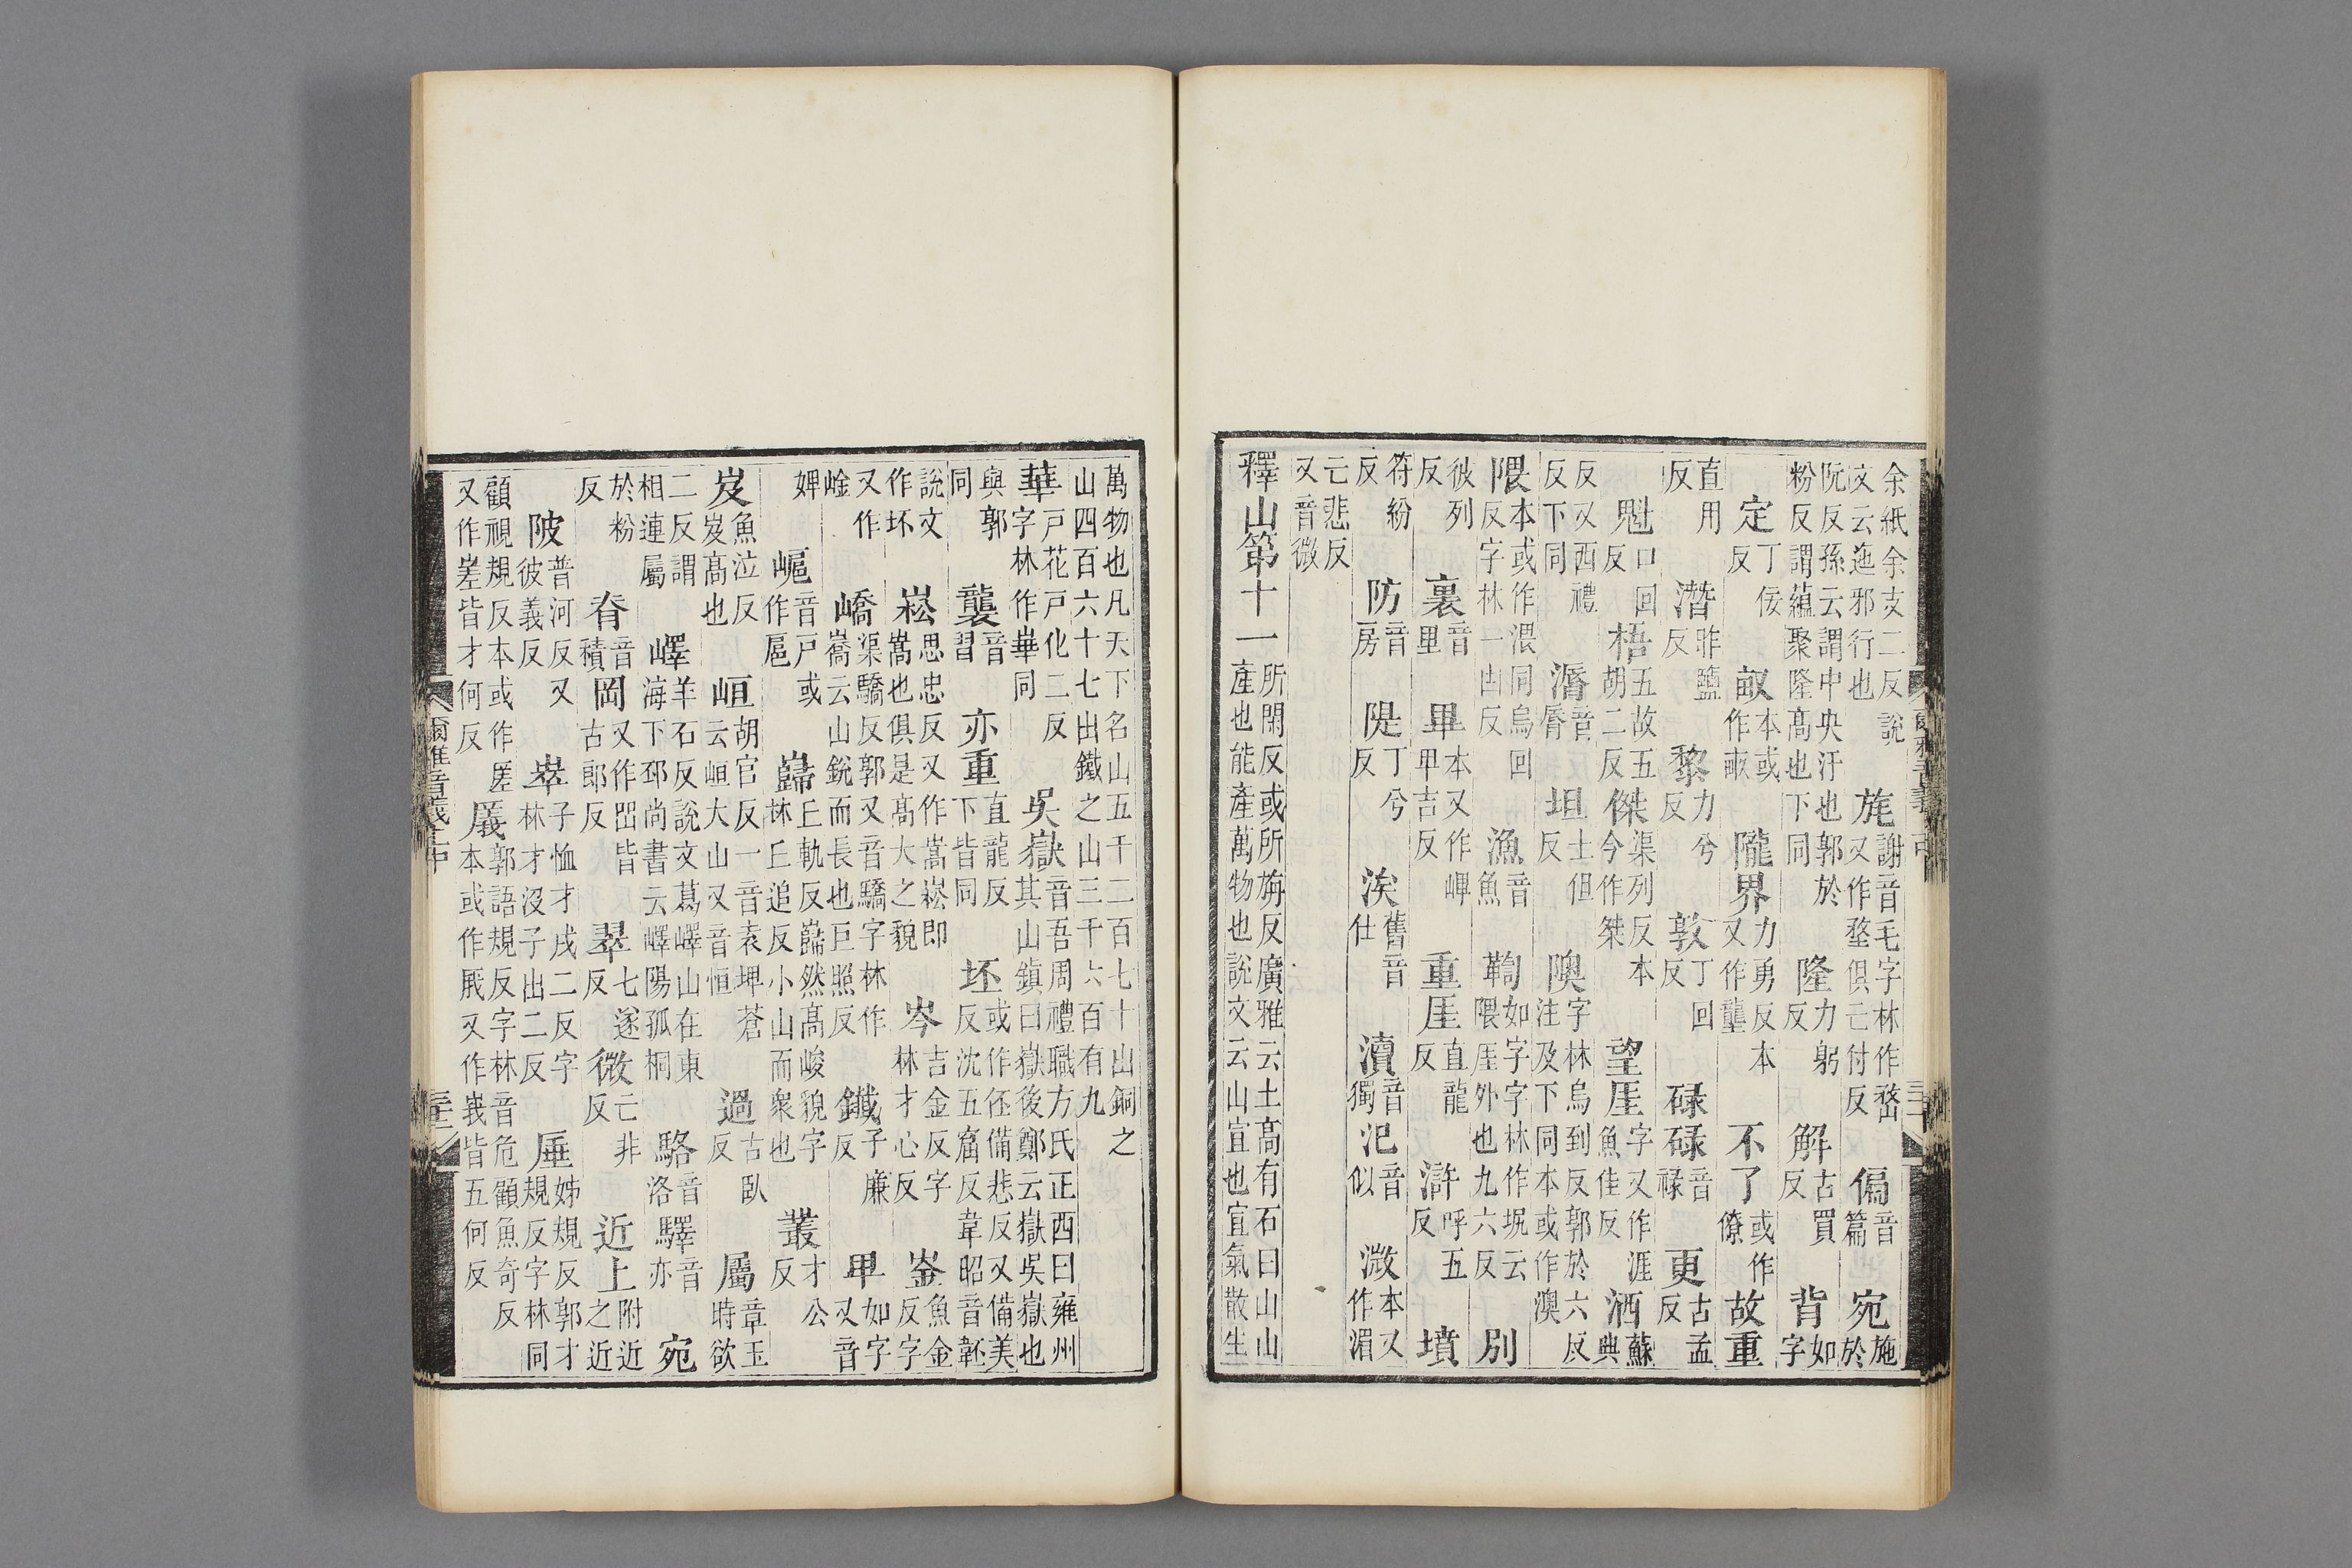 余紙余支二反說文云迤邪行也 旄 謝音毛字林作嵍又作堥俱亡付反 偏 音篇 宛 施於
阮反孫云謂中央汙也郭於粉反謂蘊聚隆高也下同 隆 力躬反 解 古買反 背 如字
定 丁佞反 畝 本或作畞 隴界 力勇反本又作壟 不了 或作僚 故重
直用反 潛 昨鹽反 黎 力兮反 敦 丁回反 碌碌 音祿 更 古孟反
魁 口回反 梧 五故五胡二反 傑 渠列反本今作桀 望厓 字又作涯魚佳反 洒 蘇典
反又西禮反下同 漘 音脣 坦 士但反 隩 字林烏到反郭於六反注及下同本或作澳
隈 本或作渨同烏回反字林一由反 漁 音魚 鞫 如字字林作坭云隈厓外也九六反 別
彼列反 裏 音里 畢 本又作㟀卑吉反 重厓 直龍反 滸 呼五反 墳
符紛反 防 音房 隄 丁兮反 涘 舊音仕 瀆 音獨 汜 音似 溦 本又作湄
亡悲反又音微
釋山第十一 所閑反或所旃反廣雅云土高有石曰山山產也能產萬物也說文云山宜也宜氣散生
萬物也凡天下名山五千二百七十出銅之山四百六十七出鐵之山三千六百有九
華 戶花戶化二反字林作崋同 吳嶽 音吾周禮職方氏正西曰雍州其山鎮曰嶽後鄭云嶽吳嶽也
與郭同 襲 音習 亦重 直龍反下皆同 坯 或作伾備悲反又備美反沈五窟反韋昭音
說文作坏 崧 思忠反又作嵩崧即嵩也俱是高大之貌 岑 吉金反字林才心反 崟 魚金反字
又作崯 嶠 渠驕反郭又音驕字林作嵩云山銳而長也巨照反 鐵 子廉反 卑 如字又音
婢 音戶或作扈 巋 丘軌反巋然高峻貌字林丘追反小山而眾也 叢 才公反
岌 魚泣反岌高也 峘 胡官反一音袁埤蒼云峘大山又音恒 過 古臥反 屬 章玉時欲
二反謂相連屬 嶧 羊石反說文葛嶧山在東海下邳尚書云嶧陽孤桐 駱 音洛 驛 音亦 宛
於粉反 脊 音積 岡 又作皆古郎反 翠 七遂反 微 亡非反 近上 附近之近
陂 普河反又彼義反 崒 子恤才戌二反字林才沒子出二反 厜 姊規反郭才規反字林同
顧視規反本或作又作嵳皆才何反 㕒 郭語規反字林音危顧魚奇反本或作又作峩皆五何反
爾雅音義上中